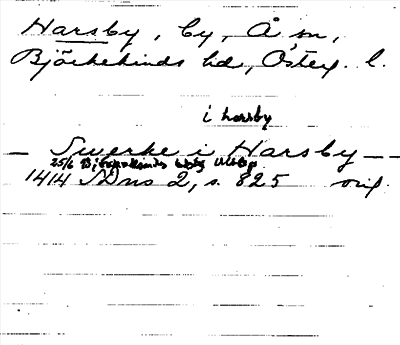 Harsby, by, Å sn,
Björkekinds hd, Östg. l.
i harsby
— Swerke i Harsby — —
25/6 Björkekinds
1414 SDns 2, s. 825 orig.